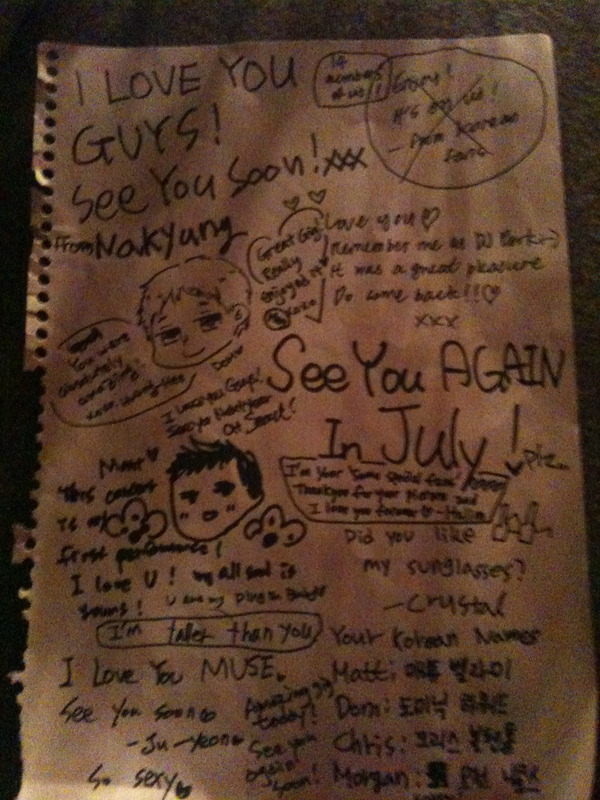 I LOVE YOU
GUYS!
See You Soon! xxx
From Nakyung
14
members
of us!
It's on us!
Korean
fans
Great Gig
Really
enjoyed it
xoxo
Love you♡
Remember me as DJ
It was a great pleasure
Do come back!!♡
xxx
You were
absolutely
amazing!
Dom
I love you Guys!
See ya
See You AGAIN
In July!
plz..
I'm your 'Some special fans'
Thankyou for your picture and
I love you forever
Matt♡
This concert
is my
first
I love U! my All soul is
yours!
U are my Plug In Baby
I'm taller than you
Did you like
my sunglasses?
-Crystal
I Love You MUSE.
See You soon
-Ju-yeon
So sexy
Amazing
today!
See you
again
soon!
Your Korean Names
Matt: 매튜 벨라미
Dom: 도미닉 하워드
Chris: 크리스
Morgan: